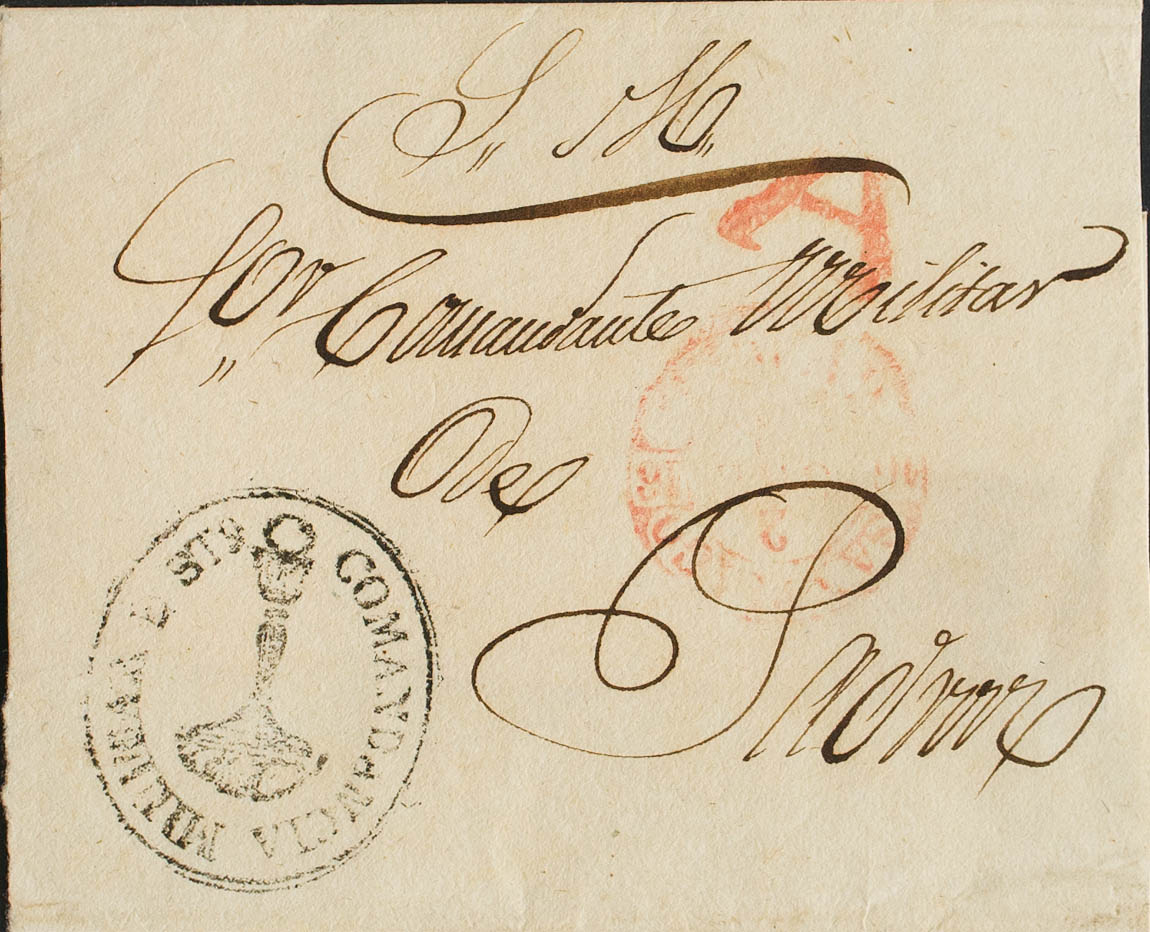 S,, M,,
Sor,, Comandante Militar
de
Padron
COMANDANCIA MILITAR D STGO